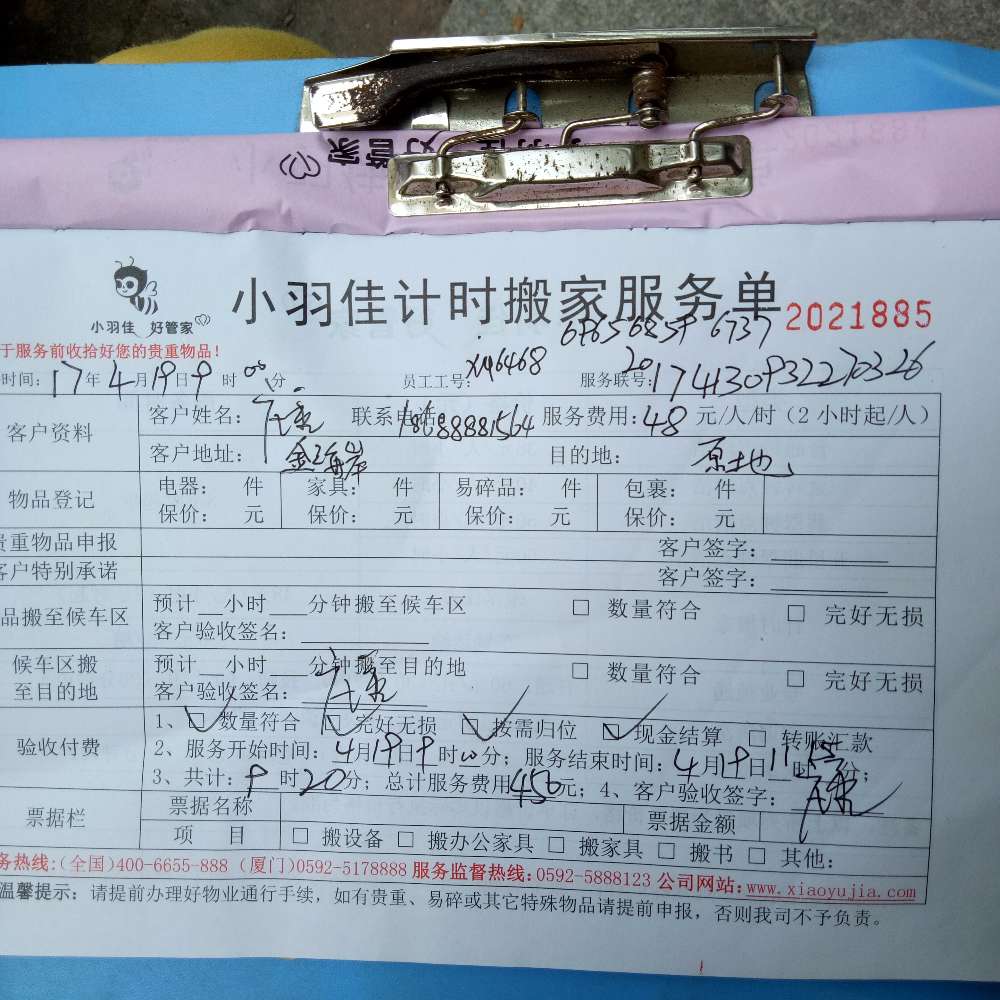 好管家
小羽佳 好管家
小羽佳计时搬家服务单
2021885
于服务前收拾好您的贵重物品!
时间: 17年4月19日9时00分 员工工号: 服务联号: 20174130932270326
客户资料
客户姓名: 联系电话 18688881564 服务费用: 48 元/人/时(2小时起/人)
客户地址: 金海岸 目的地: 原地
物品登记
电器: 件 家具: 件 易碎品: 件 包裹: 件
保价: 元 保价: 元 保价: 元 保价: 元
贵重物品申报 客户签字:
客户特别承诺 客户签字:
品搬至候车区
预计__小时___分钟搬至候车区 □ 数量符合 □ 完好无损
客户验收签名:
候车区搬至目的地
预计__小时___分钟搬至目的地 □ 数量符合 □ 完好无损
客户验收签名:
验收付费
1、□ 数量符合 □ 完好无损 □ 按需归位 □ 现金结算 □ 转账汇款
2、服务开始时间: 4月19日9时00分; 服务结束时间: 4月19日11时分;
3、共计: 9时20分; 总计服务费用456元; 4、客户验收签字:
票据栏
票据名称 票据金额
项 目 □ 搬设备 □ 搬办公家具 □ 搬家具 □ 搬书 □ 其他:
务热线:(全国)400-6655-888 (厦门)0592-5178888 服务监督热线:0592-5888123 公司网站:www.xiaoyujia.com
温馨提示: 请提前办理好物业通行手续, 如有贵重、易碎或其它特殊物品请提前申报, 否则我司不予负责。